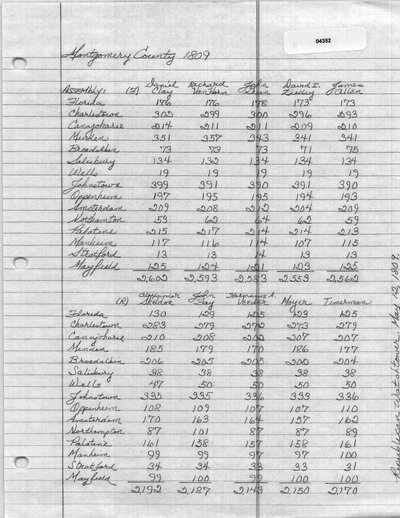 04352
Montgomery County 1809
Assembly: (F) Daniel Cady Richard Van Horn John Green David I. Zielley James Allen
Florida 176 176 178 173 173
Charlestown 302 299 300 296 293
Canajoharie 214 211 211 209 210
Minden 351 357 343 341 341
Broadalbin 73 73 73 71 75
Salisbury 134 132 134 134 134
Wells 19 19 19 19 19
Johnstown 399 391 390 391 390
Oppenheim 197 195 195 194 193
Amsterdam 209 208 212 204 209
Northamton 53 62 64 62 59
Palatine 215 217 214 214 213
Manheim 117 116 114 107 115
Stratford 13 13 14 13 13
Mayfield 125 124 121 123 125
2,602 2,593 2,583 2,553 2,562
(R) Alexander Sheldon John Fay Harmanus A. Vedder Moyer Timerman
Florida 130 129 125 123 125
Charlestown 283 279 272 273 279
Canajoharie 210 208 202 207 207
Minden 185 179 170 186 177
Broadalbin 206 205 205 200 204
Salisbury 38 38 38 38 38
Wells 47 50 50 50 50
Johnstown 335 335 336 339 336
Oppenheim 108 109 107 107 110
Amsterdam 170 163 164 157 162
Northampton 87 101 87 87 89
Palatine 161 158 157 158 161
Manheim 99 99 97 97 100
Stratford 34 34 33 33 31
Mayfield 99 100 99 100 100
2,192 2,187 2,143 2,150 2,170
Republican Watchtower, May 12, 1809.